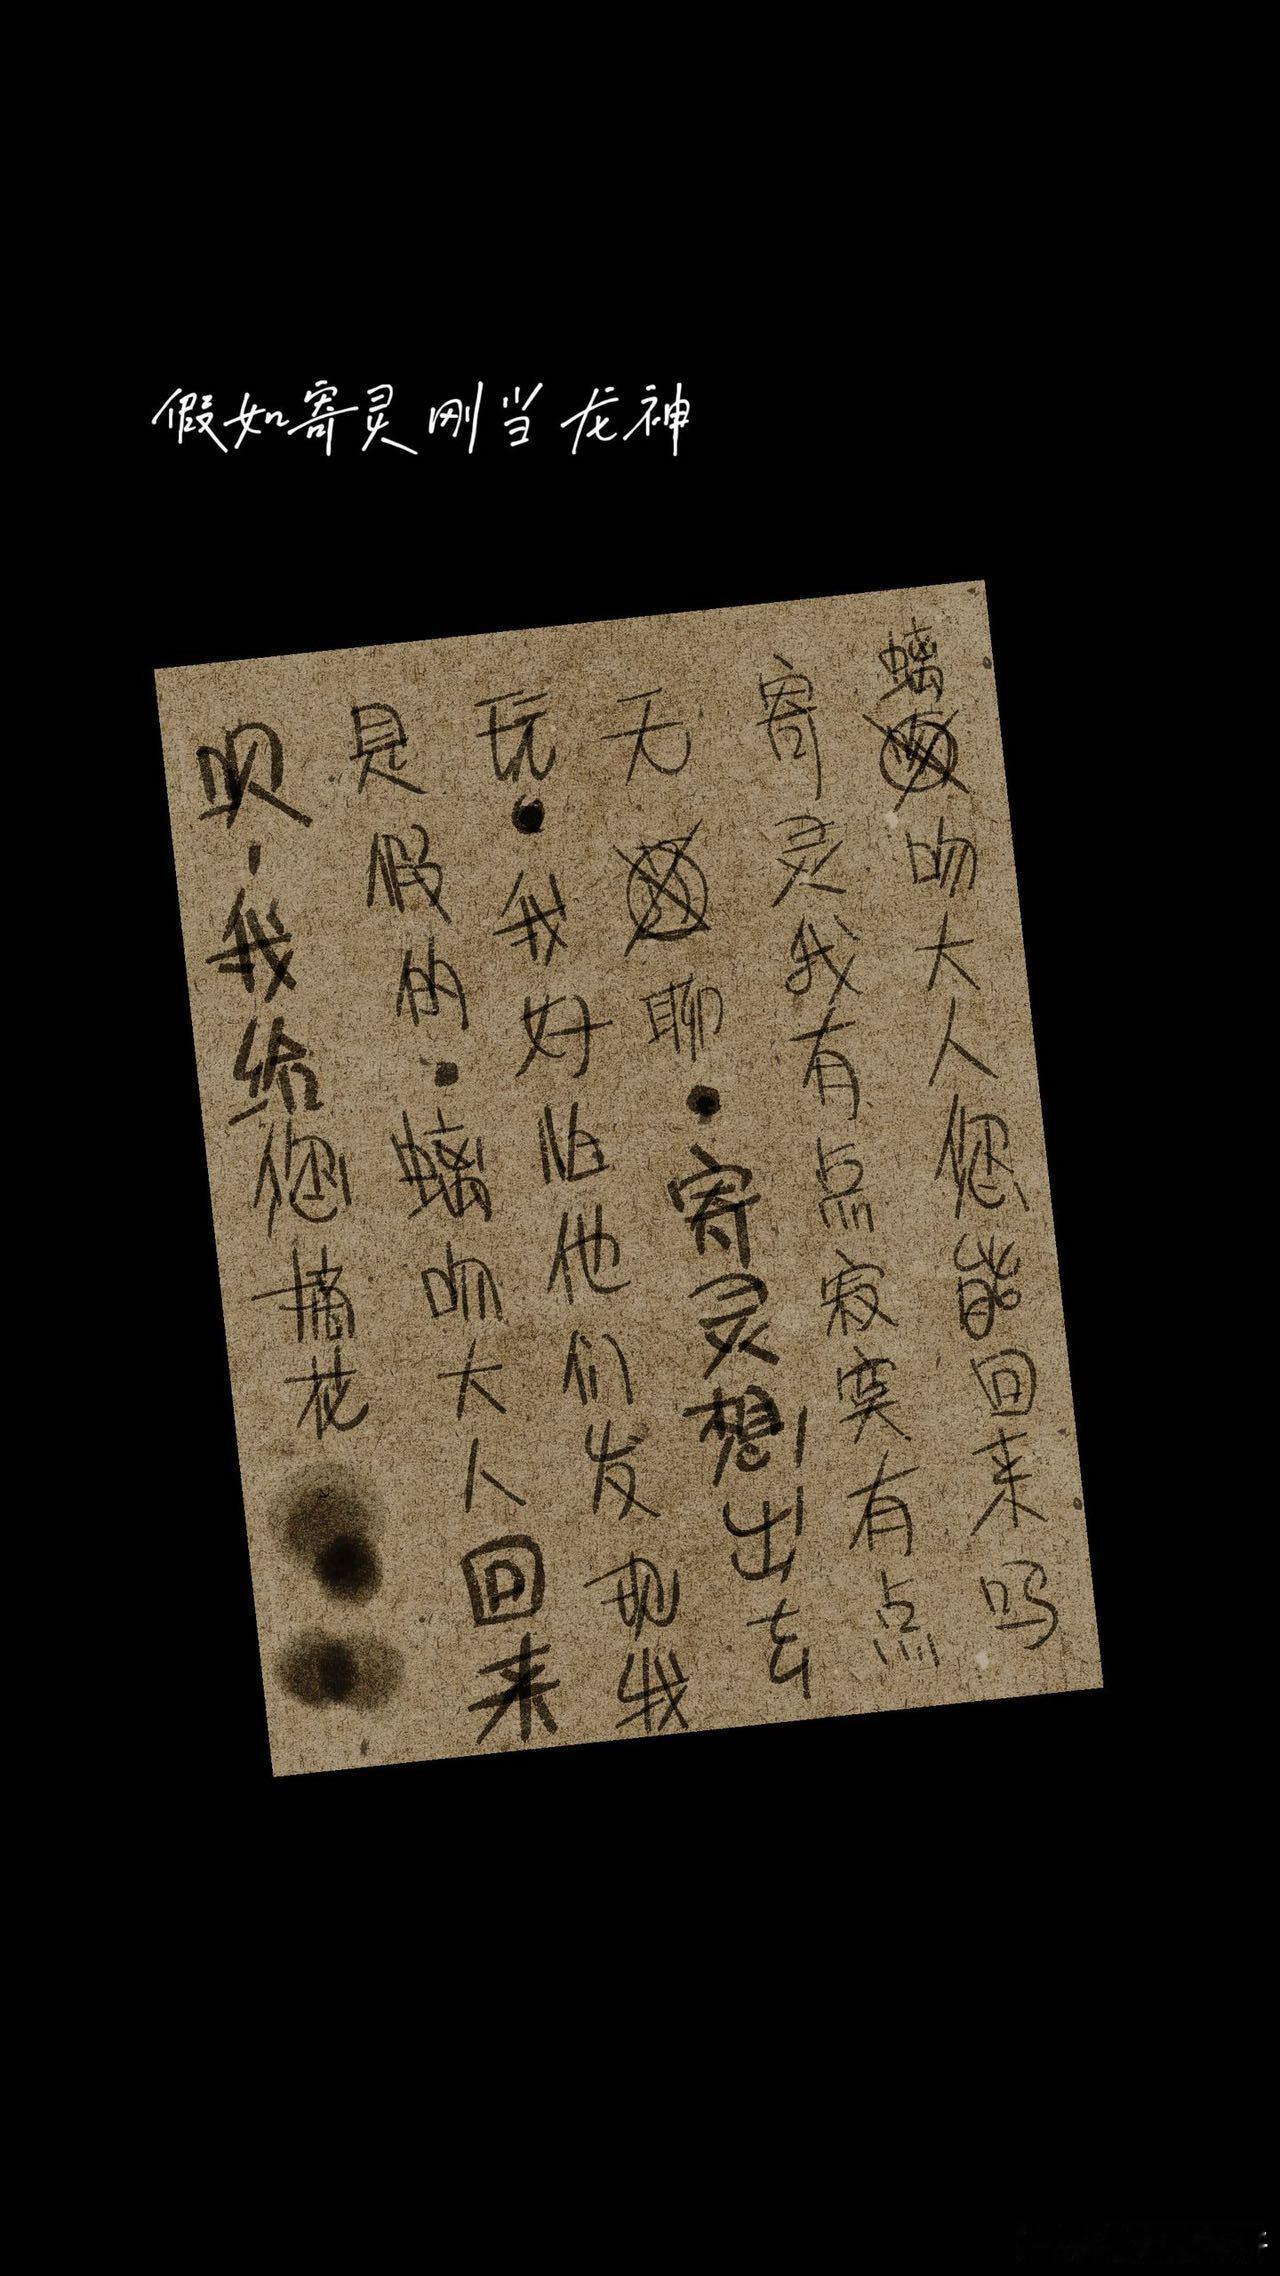 假如寄灵刚当龙神
螭吻大人您能回来吗
寄灵我有点寂寞有点
无聊·寄灵想出去
玩·我好怕他们发现我
是假的·螭吻大人回来
呗·我给您摘花